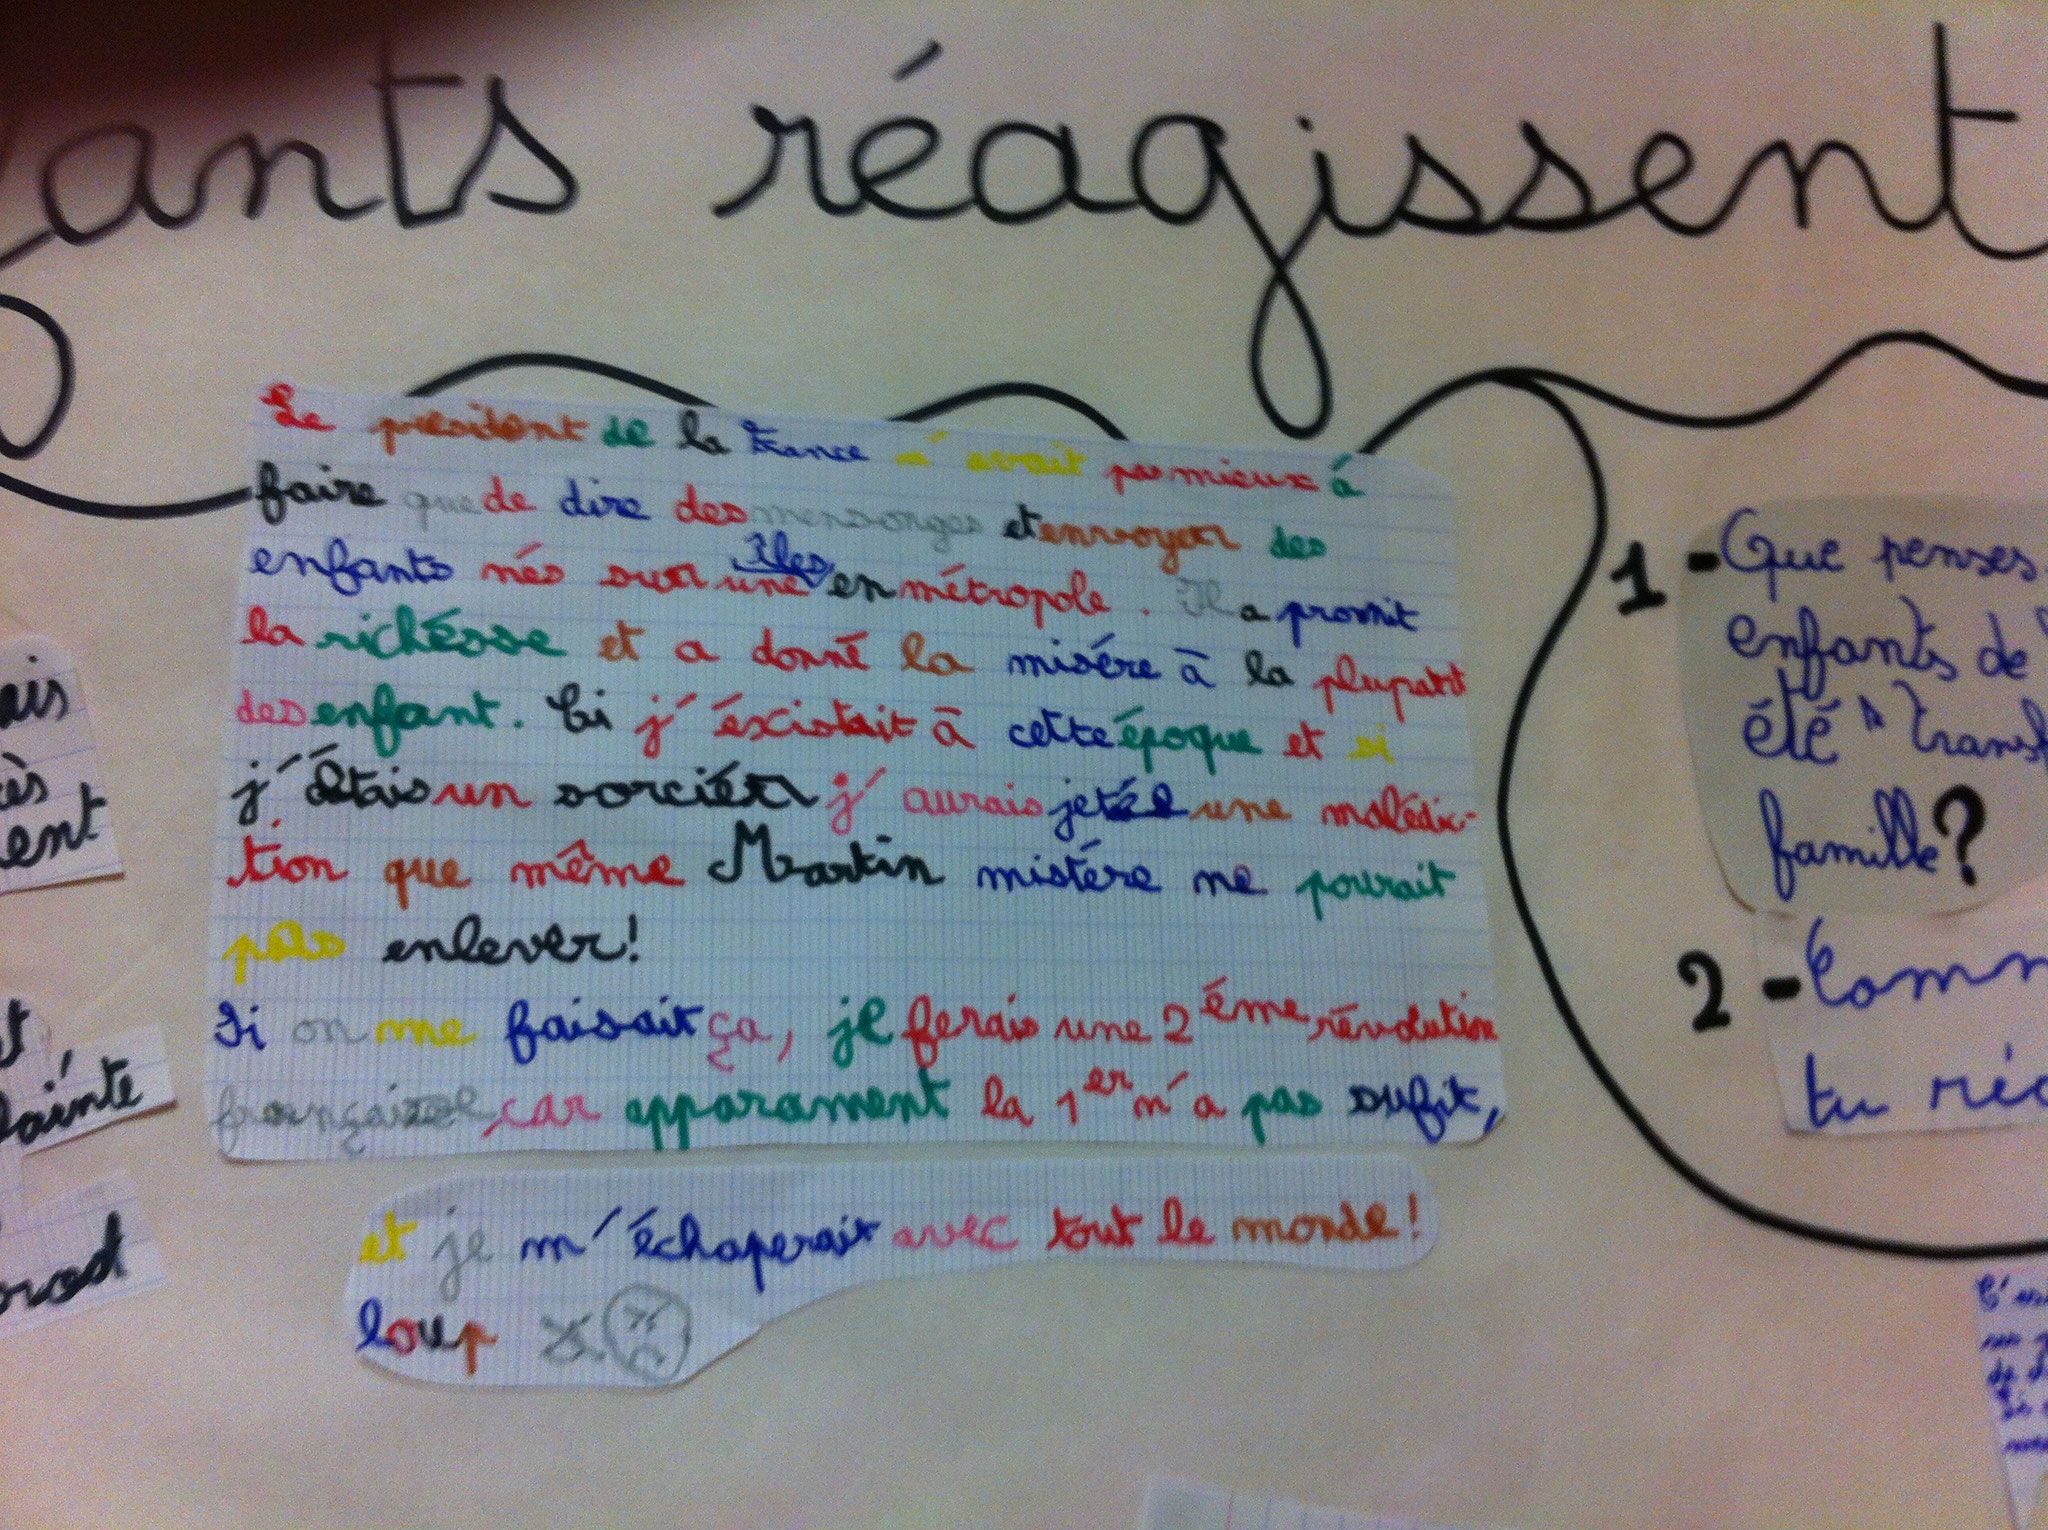 ants réagissent
Le president de la France n'avait pas mieux à
faire que de dire des mensonges et envoyer des
enfants nés sur une îles en métropole. Il a promit
la richésse et a donné la misére à la plupart
des enfant. Ci j'éxistait à cette époque et si
j'étais un sorciér j'aurais jeté une malédic-
tion que même Martin mistére ne pourait
pas enlever!
Si on me faisait ça, je ferais une 2éme révolution
françaises, car apparament la 1er n'a pas sufit,
et je m'échaperait avec tout le monde!
loup
1-Que penses
enfants de
été "transf
famille?
2-Comm
tu réa
ais
ès
ent
t
plainte